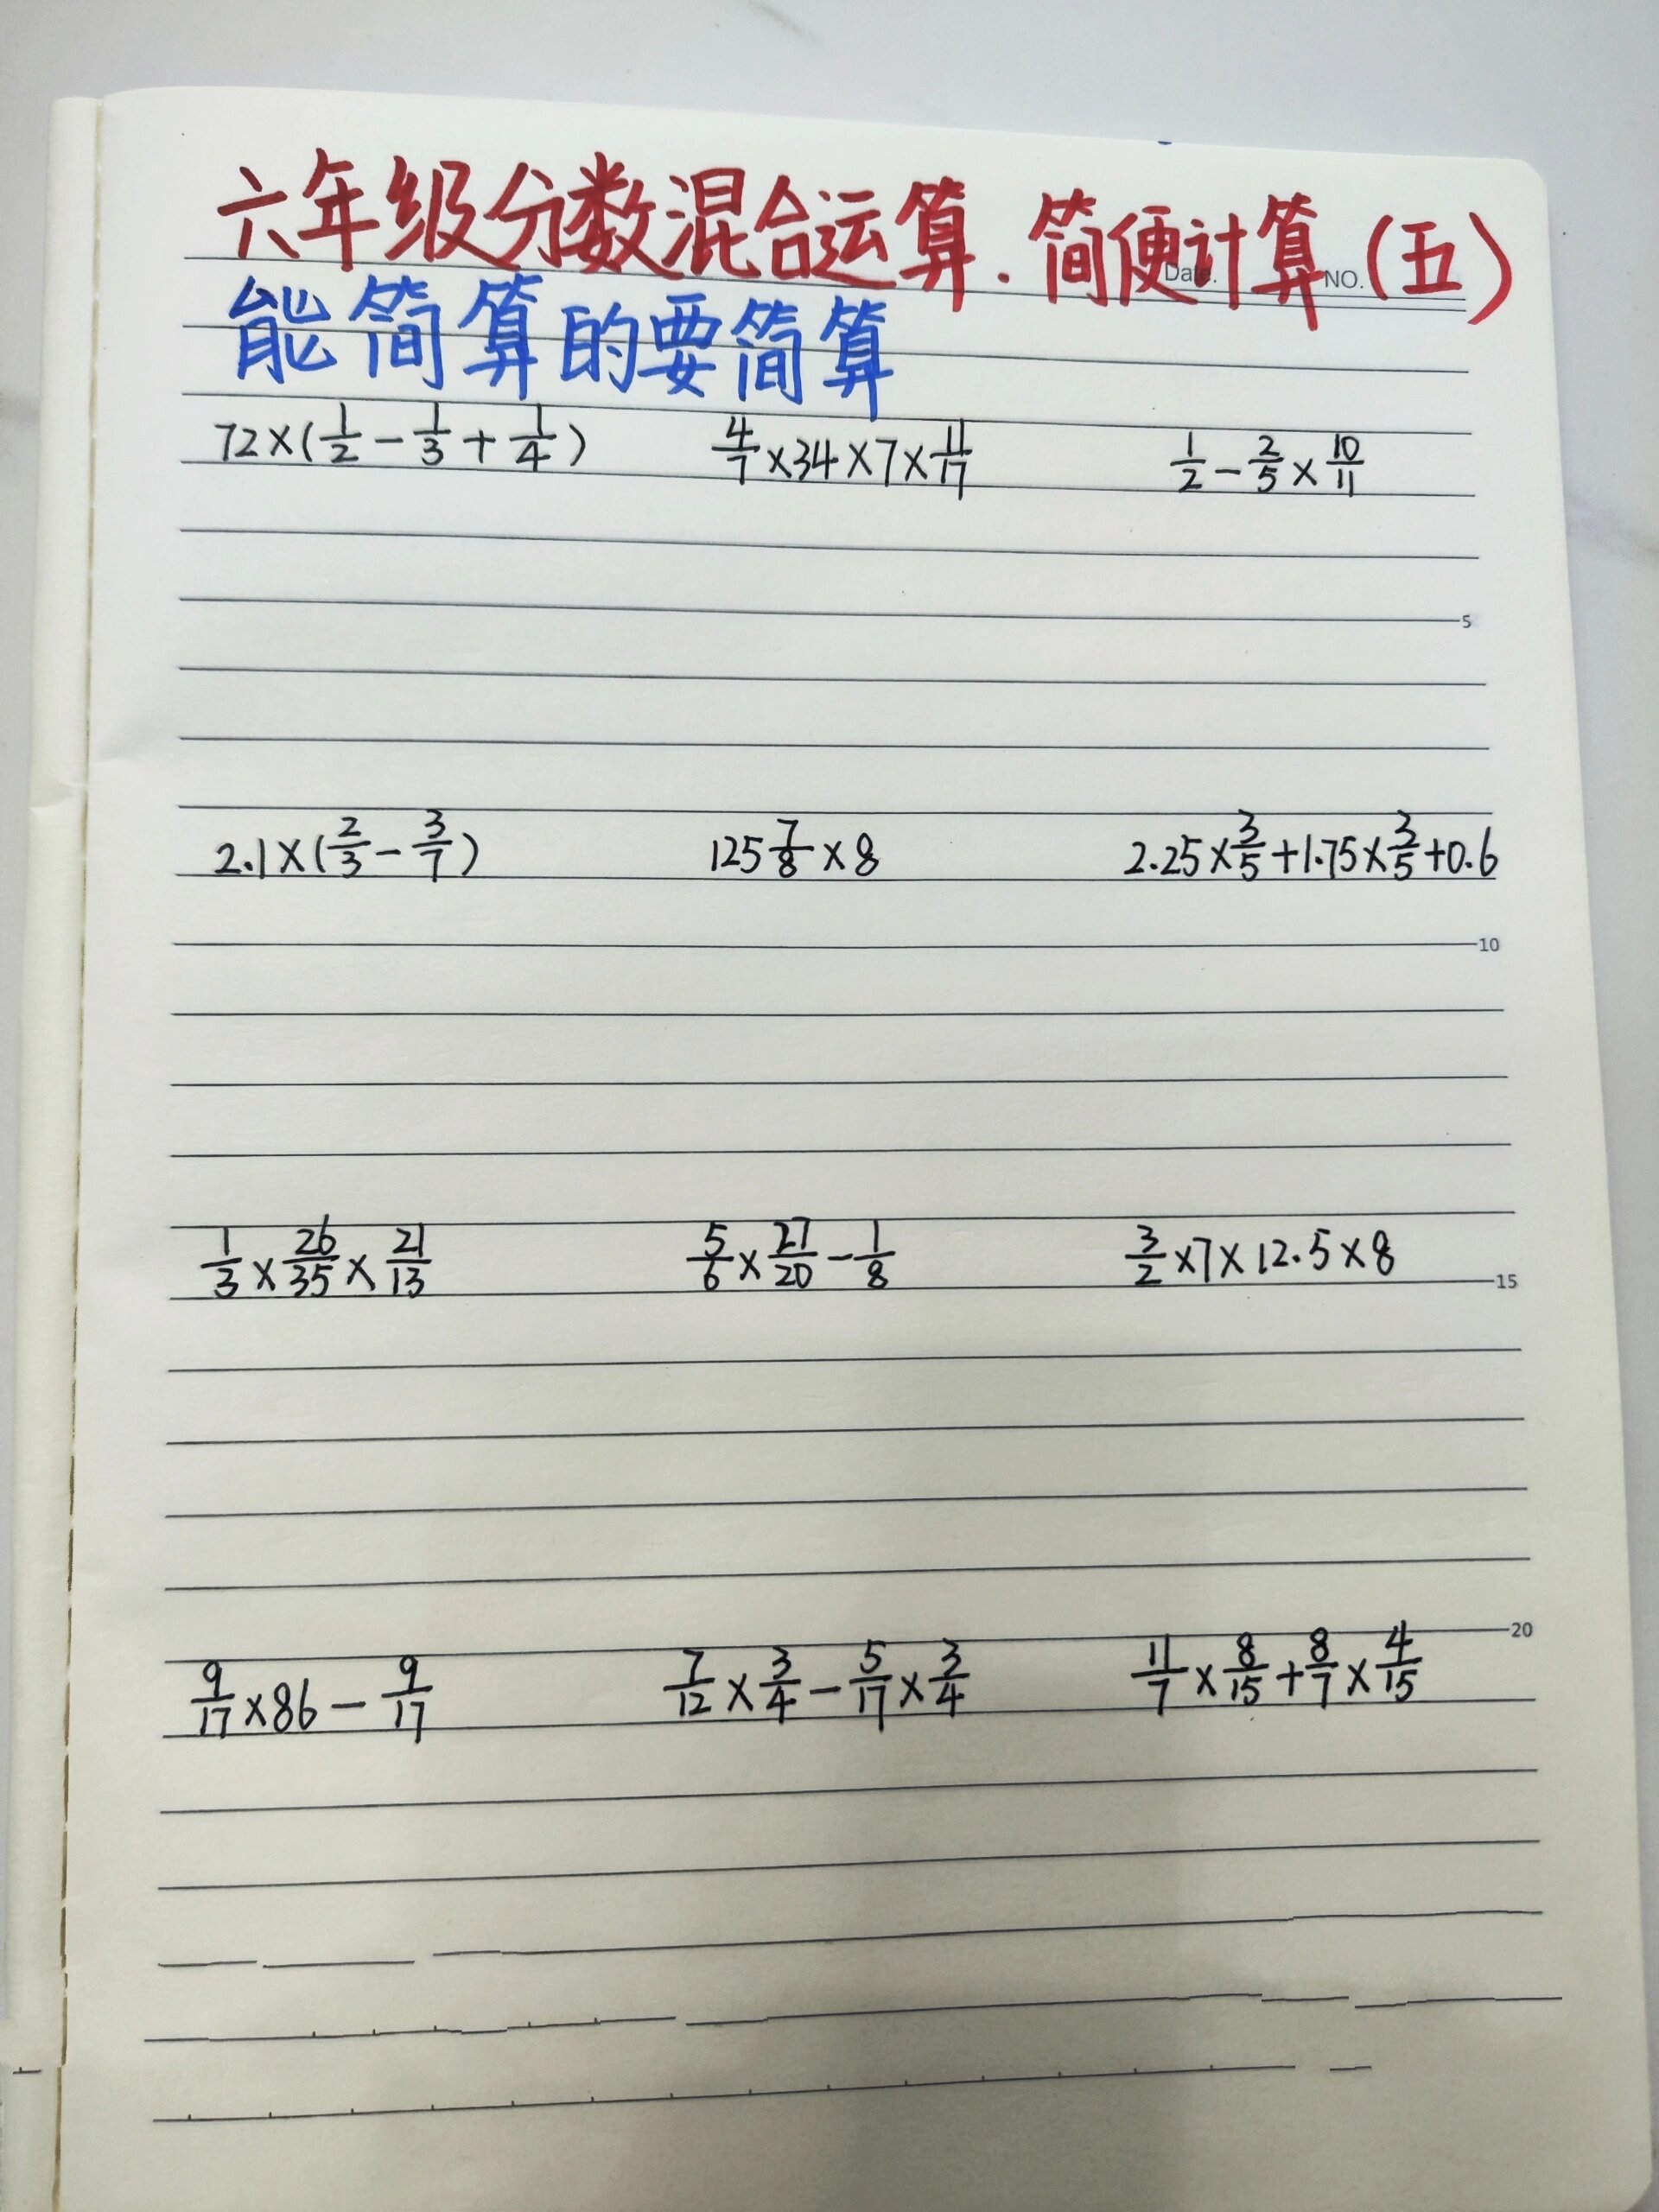 六年级分数混合运算.简便计算(五)
Date. NO.
能简算的要简算
72×(1/2-1/3+1/4) 4/7×34×7×11/17 1/2-2/5×10/11
5
2.1×(2/3-3/7) 125 7/8×8 2.25×3/5+1.75×3/5+0.6
10
1/3×26/35×21/13 5/6×27/20-1/8 3/2×7×12.5×8
15
20
9/17×86-9/17 7/12×3/4-5/17×3/4 11/7×8/15+8/7×4/15